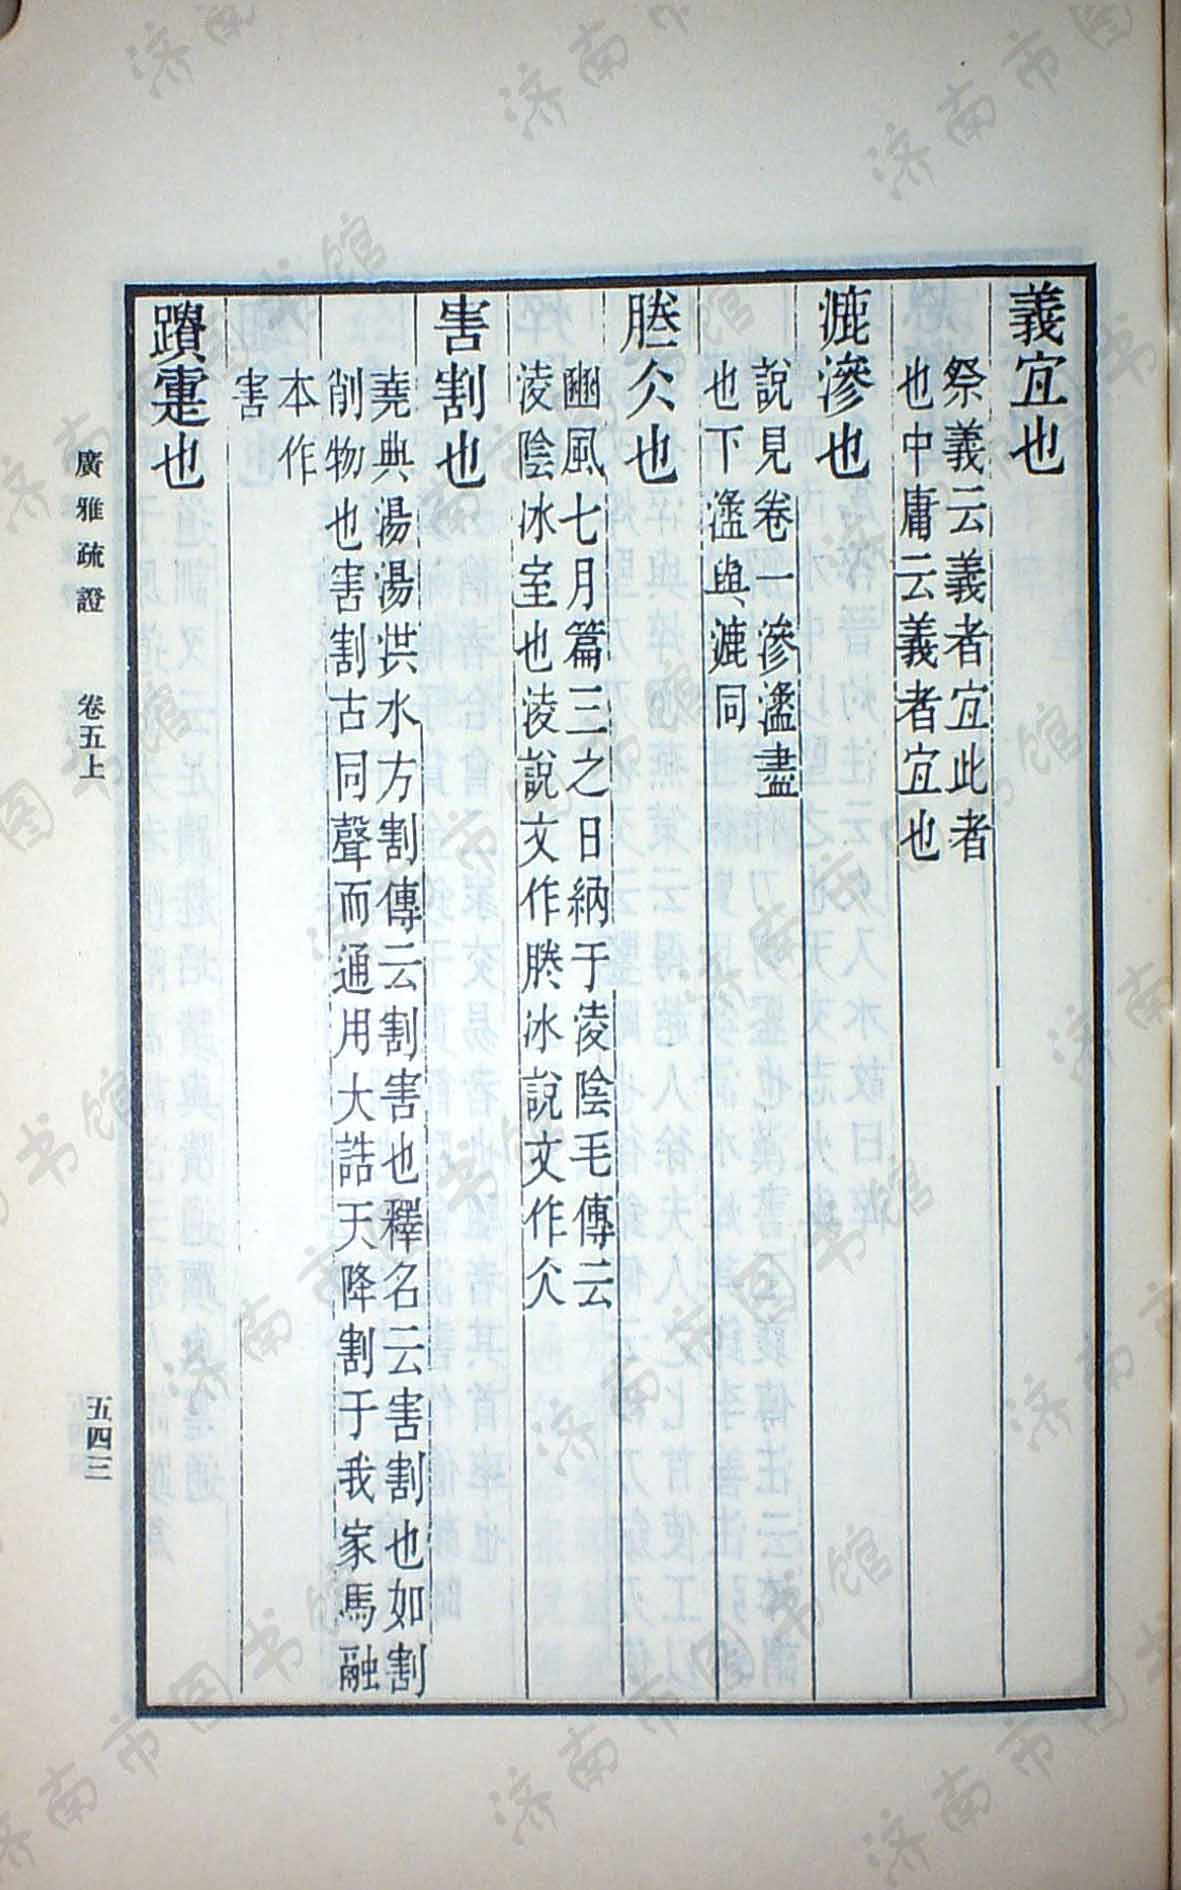 義宜也
祭義云義者宜此者
也中庸云義者宜也
漉滲也
說見卷一滲盪盡
也下盪與漉同
仌也
豳風七月篇三之日納于凌陰毛傳云
凌陰冰室也凌說文作㬺冰說文作仌
害割也
堯典湯湯洪水方割傳云割害也釋名云害割也如割
削物也害割古同聲而通用大誥天降割于我家馬融
本作
害
躓疐也
廣雅疏證 卷五上
五四三